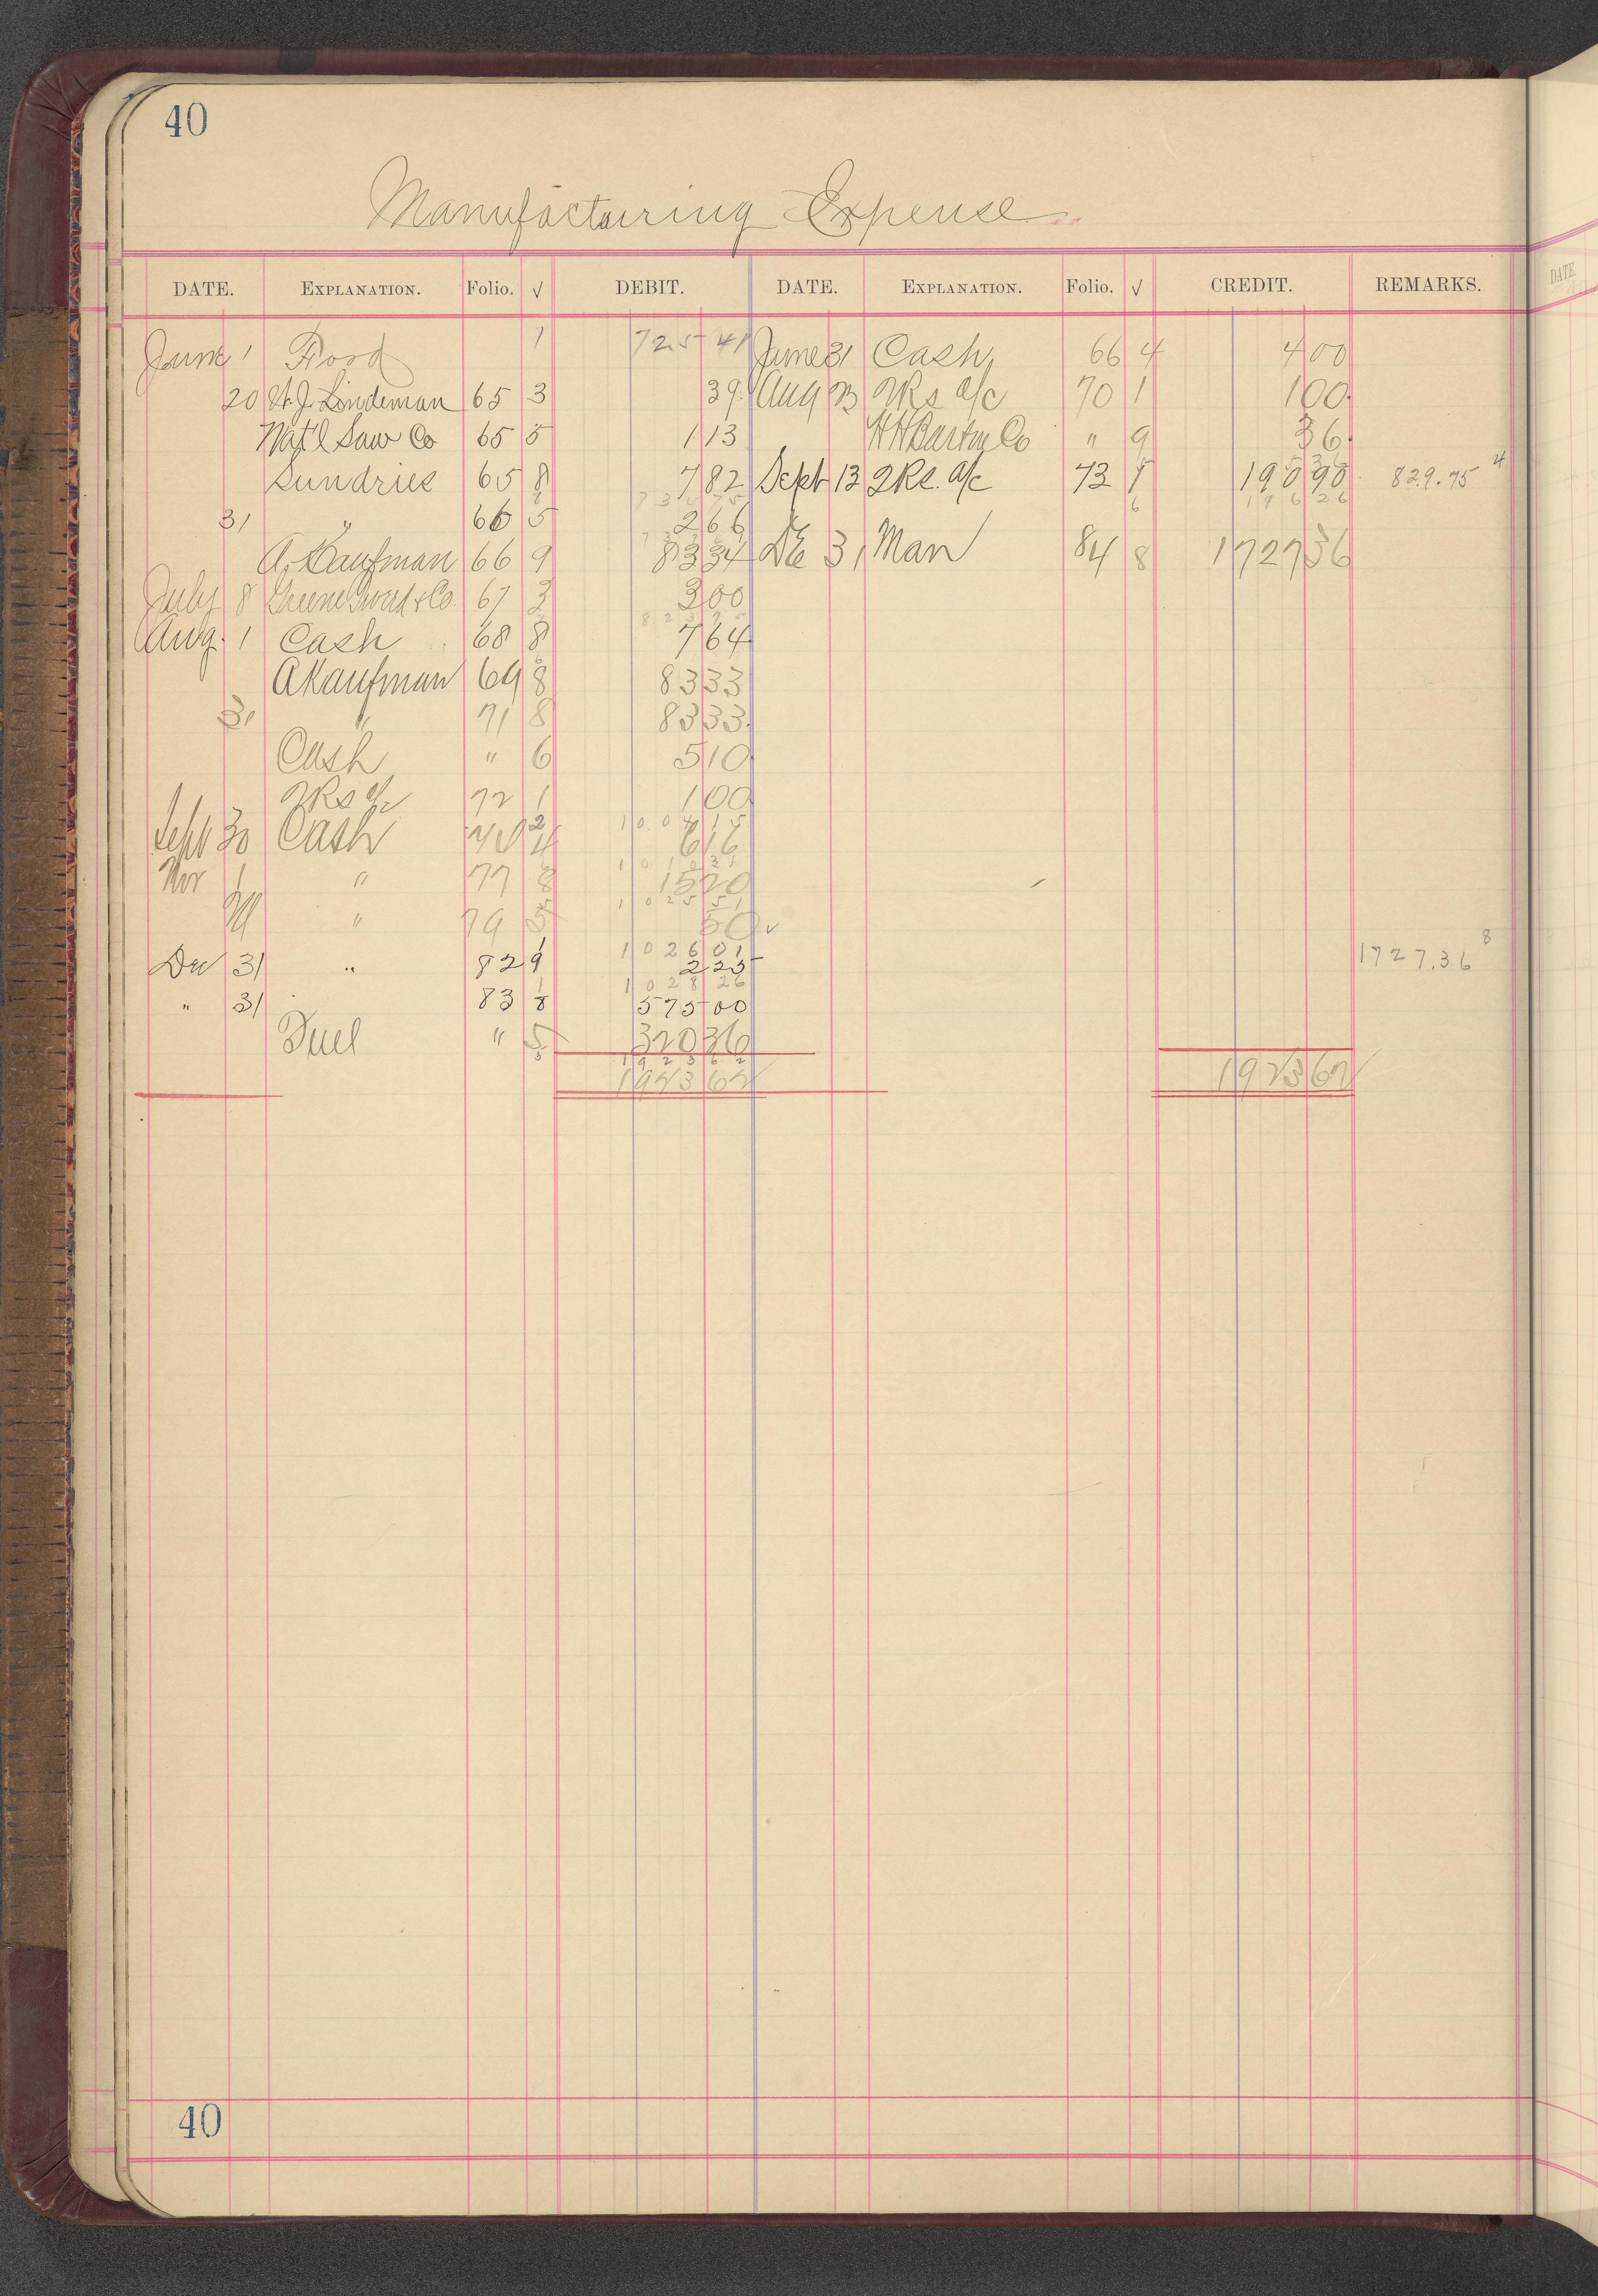 40
Manufacturing Expense
DATE. EXPLANATION. Folio. √ DEBIT. DATE. EXPLANATION. Folio. √ CREDIT. REMARKS.
June 1 1 725 41 June 31 Cash 66 4 4 00
20 A. J. Lindeman 65 3 39 Aug 23 2Rs a/c 70 1 1 00
Nat'l Saw Co 65 5 1 13 H H Barton Co " 9 36
Sundries 65 8 7 82 Sept 13 2Rs. a/c 73 1 190 90 829.75 4
7 3 4 75 6 1 9 6 2 6
31 " 66 5 2 66
A. Kaufman 66 9 83 34 De 31 Man 84 8 1727 36
July 8 Greene Tweed & Co. 67 3 3 00
Aug. 1 Cash 68 8 7 64
A Kaufman 69 8 83 33
31 " 71 8 83 33
Cash " 6 5 10
2Rs a/c 72 1 1 00
1 0 0 4 1 5
Sept 30 Cash 4 6 16
1 0 1 0 3 1
Nov 1 " 77 8 15 20
1 0 2 5 5 1
" 79 5 50
1 0 2 6 0 1
Dec 31 " 82 9 2 25 1727.36 8
1 0 2 8 26
" 31 83 8 575 00
Fuel " 5 320 36
1 9 2 3 6 2
1923 62 1923 62
40